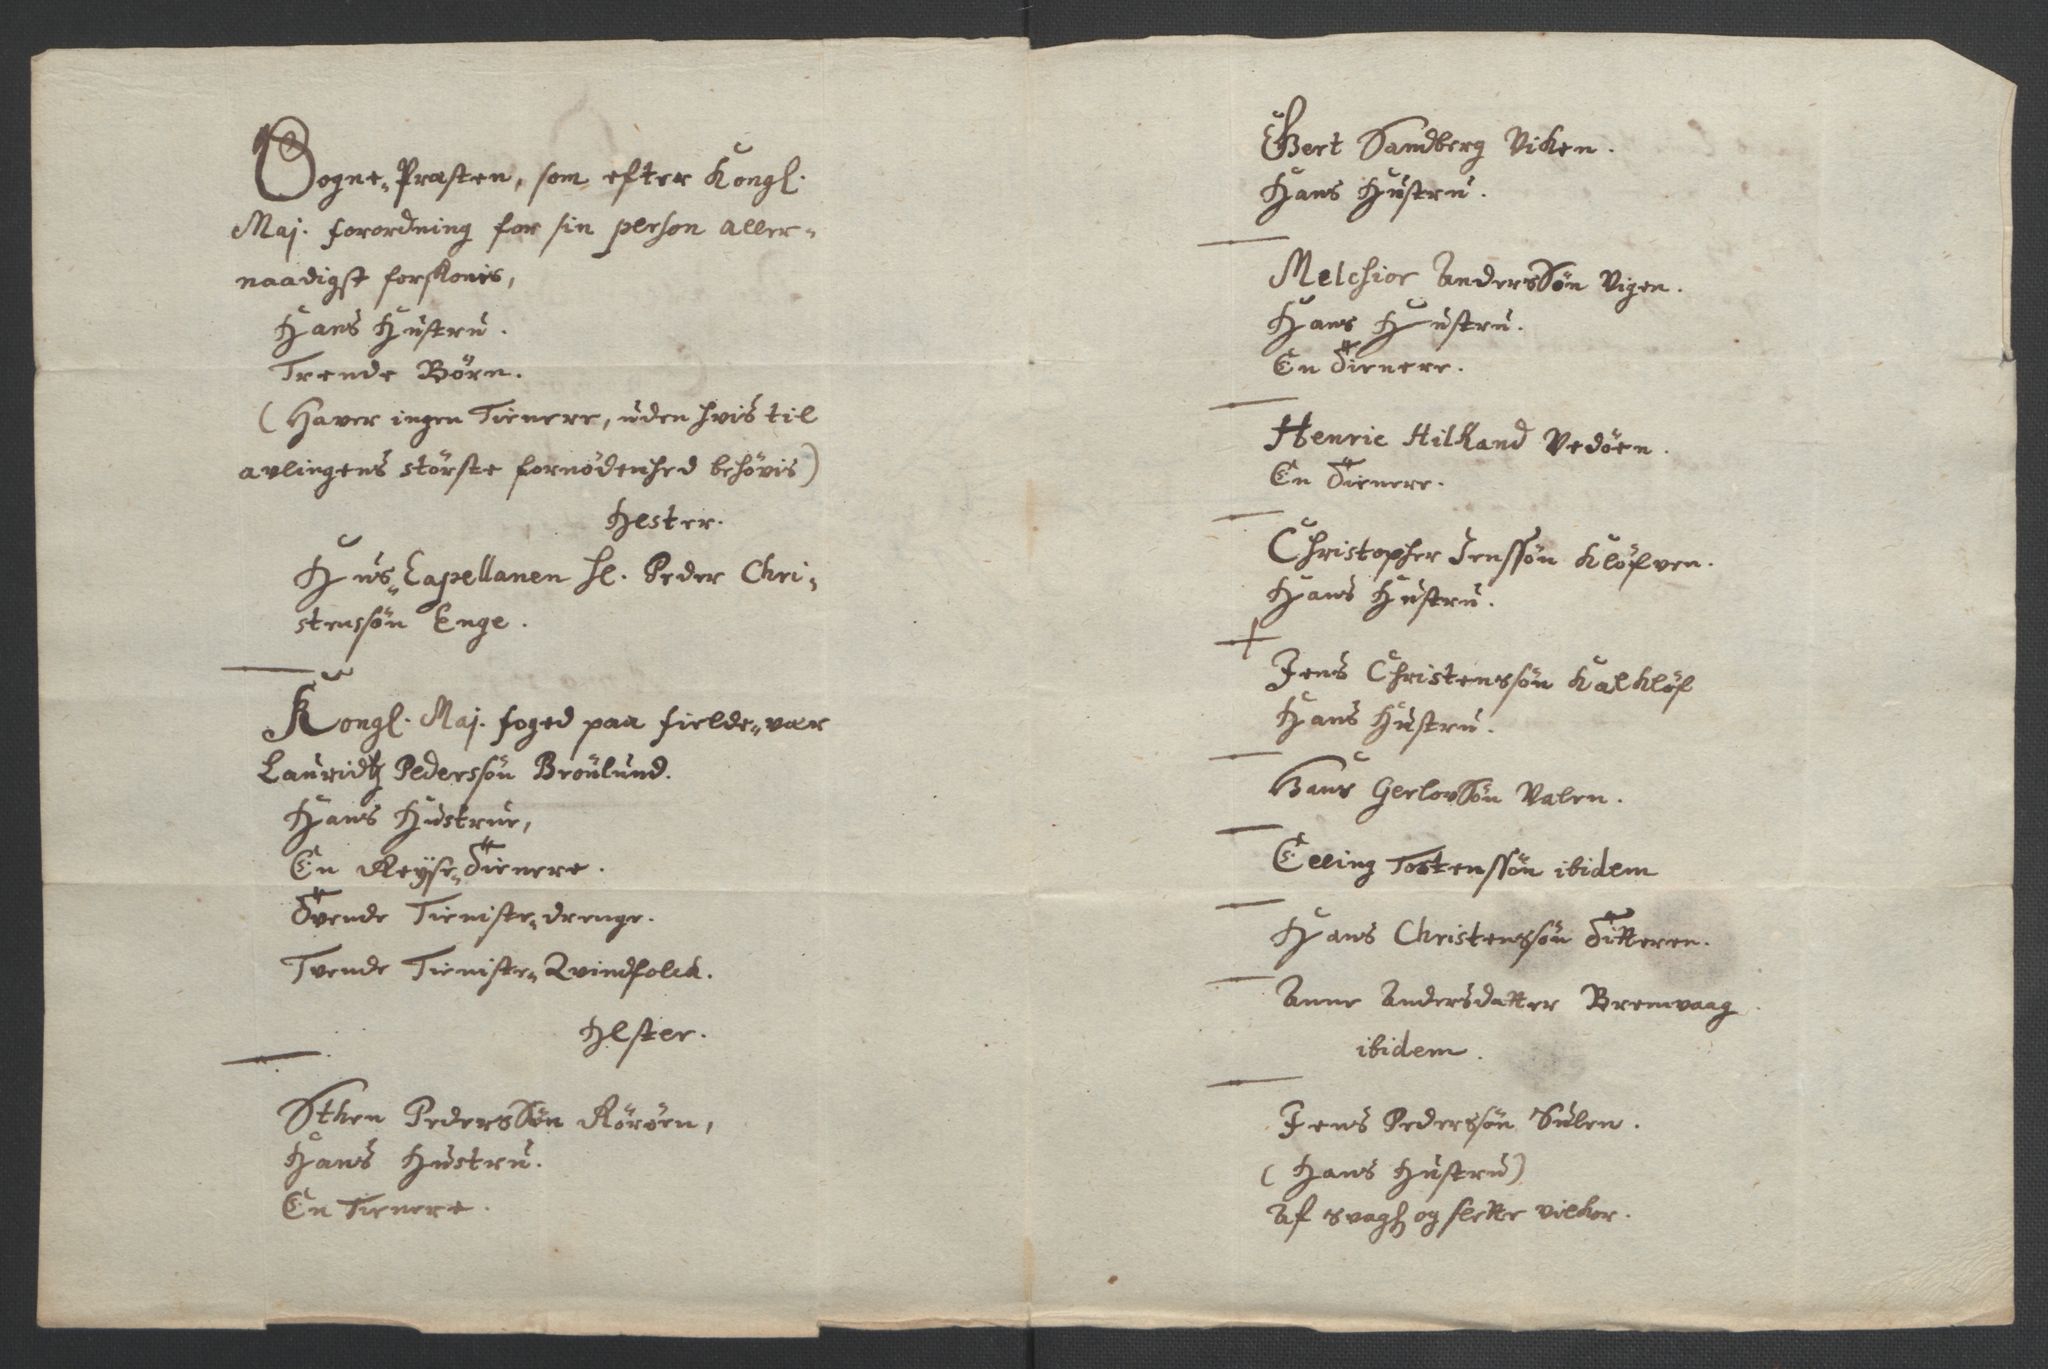 Sogne-Præsten, som efter Kongl.
Maj. forordning for sin person aller-
naadigst forskonis,
Hans Hustru.
Trende Börn.
(Haver ingen Tienere, uden hvis til
avlingens störste fornödenhed behövis)
Hester.
Hus-Capellanen hl. Peder Chri-
stenssön Enge.
Kongl. Maj. foged paa fielde-vær
Lauridtz Pederssön Broülund.
Hans Hustrue,
En Reyse-Tienere.
Tvende Tieniste-drenge.
Tvende Tieniste-Qvindfolck.
Hester.
Sthen Pederssön Röröen,
Hans Hustru.
En Tienere.
Gert Sandberg Viken.
Hans Hustru.
Melchior Anderssön Vigen.
Hans Hustru.
En Tienere.
Henric Hilkand Vedöen.
En Tienere.
Christopher Jenssön Klöfven.
Hans Hustru.
Jens Christenssön Kalklöf
Hans Hustru.
Hans Gerlovssön Valen.
Elling Tostenssön ibidem
Hans Christenssön Titteren.
Anne Andersdatter Bremvaag
ibidem.
Jens Pederssön Sulen.
(Hans Hustru)
Af svagh og slette vilkor.